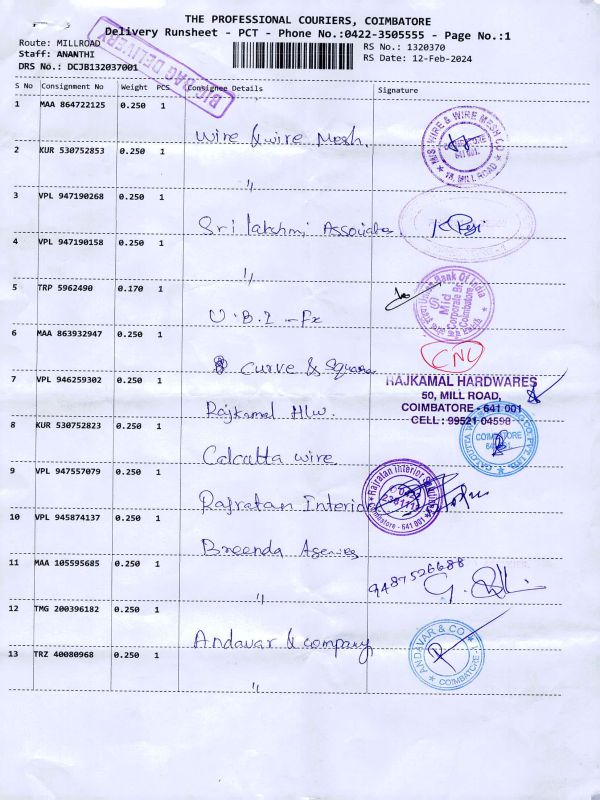 THE PROFESSIONAL COURIERS, COIMBATORE
Delivery Runsheet - PCT - Phone No.:0422-3505555 - Page No.:1
Route: MILLROAD
RS No.: 1320370
Staff: ANANTHI
RS Date: 12-Feb-2024
DRS No.: DCJB132037001
BIG BAG DELIVERY
S No Consignment No Weight PCS Consignee Details Signature
1 MAA 864722125 0.250 1
Wire & wire Mesh.
M/S. WIRE & WIRE MESH CO
641 001.
18, MILL ROAD
2 KUR 530752853 0.250 1
"
3 VPL 947190268 0.250 1
Sri lakshmi Associates
4 VPL 947190158 0.250 1
"
5 TRP 5962490 0.170 1
U.B.I - Fx
Union Bank Of India
Mid
Corporate Br.
Coimbatore
6 MAA 863932947 0.250 1
Curve & Square
CNL
7 VPL 946259302 0.250 1
Rajkamal H/w.
RAJKAMAL HARDWARES
50, MILL ROAD,
COIMBATORE - 641 001
CELL : 99521 04598
8 KUR 530752823 0.250 1
Calcutta wire
COIMBATORE
9 VPL 947557079 0.250 1
Rajratan Interior
Rajratan Interior
Coimbatore - 641 001
10 VPL 945874137 0.250 1
Breenda Agencies
11 MAA 105595685 0.250 1
"
9487526688
12 TMG 200396182 0.250 1
Andavar & company
ANDAVAR & CO
COIMBATORE-1
13 TRZ 40080968 0.250 1
"